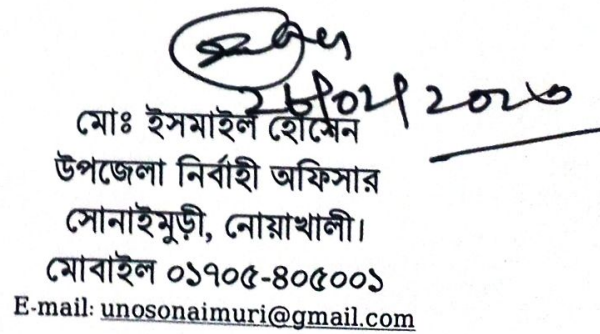 মোঃ ইসমাইল হোসেন
উপজেলা নির্বাহী অফিসার
সোনাইমুড়ী, নোয়াখালী।
মোবাইল ০১৭০৫-৪০৫০০১
E-mail: unosonaimuri@gmail.com